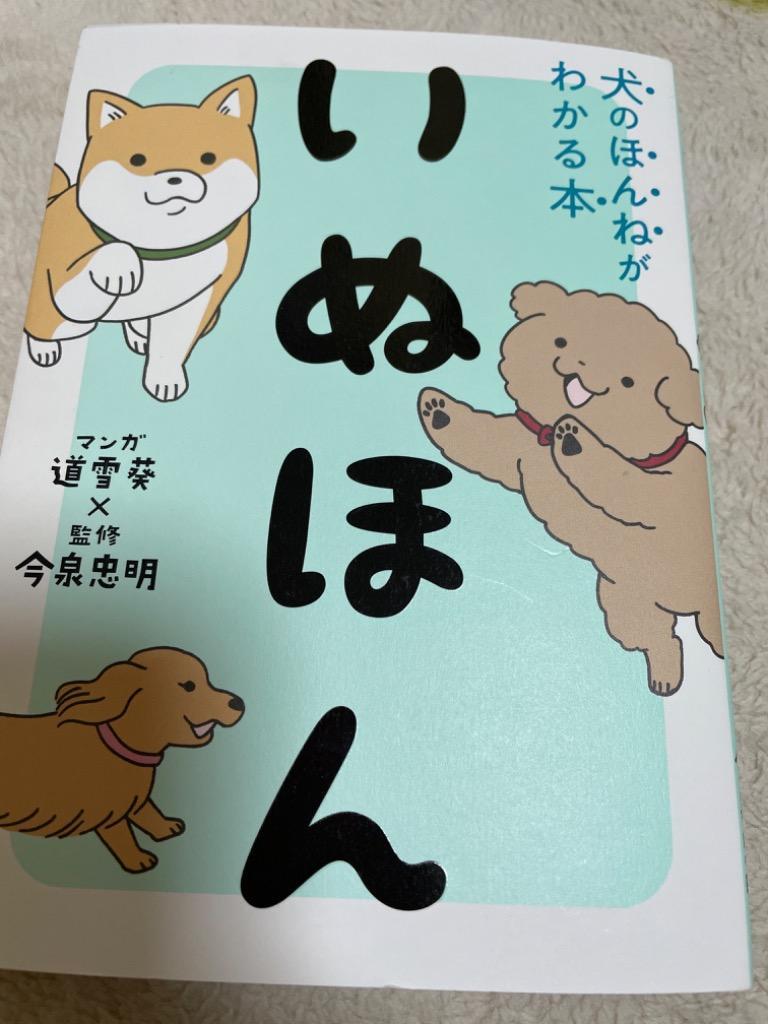 犬のほんねが
わかる本
いぬほん
マンガ
道雪葵
×
監修
今泉忠明